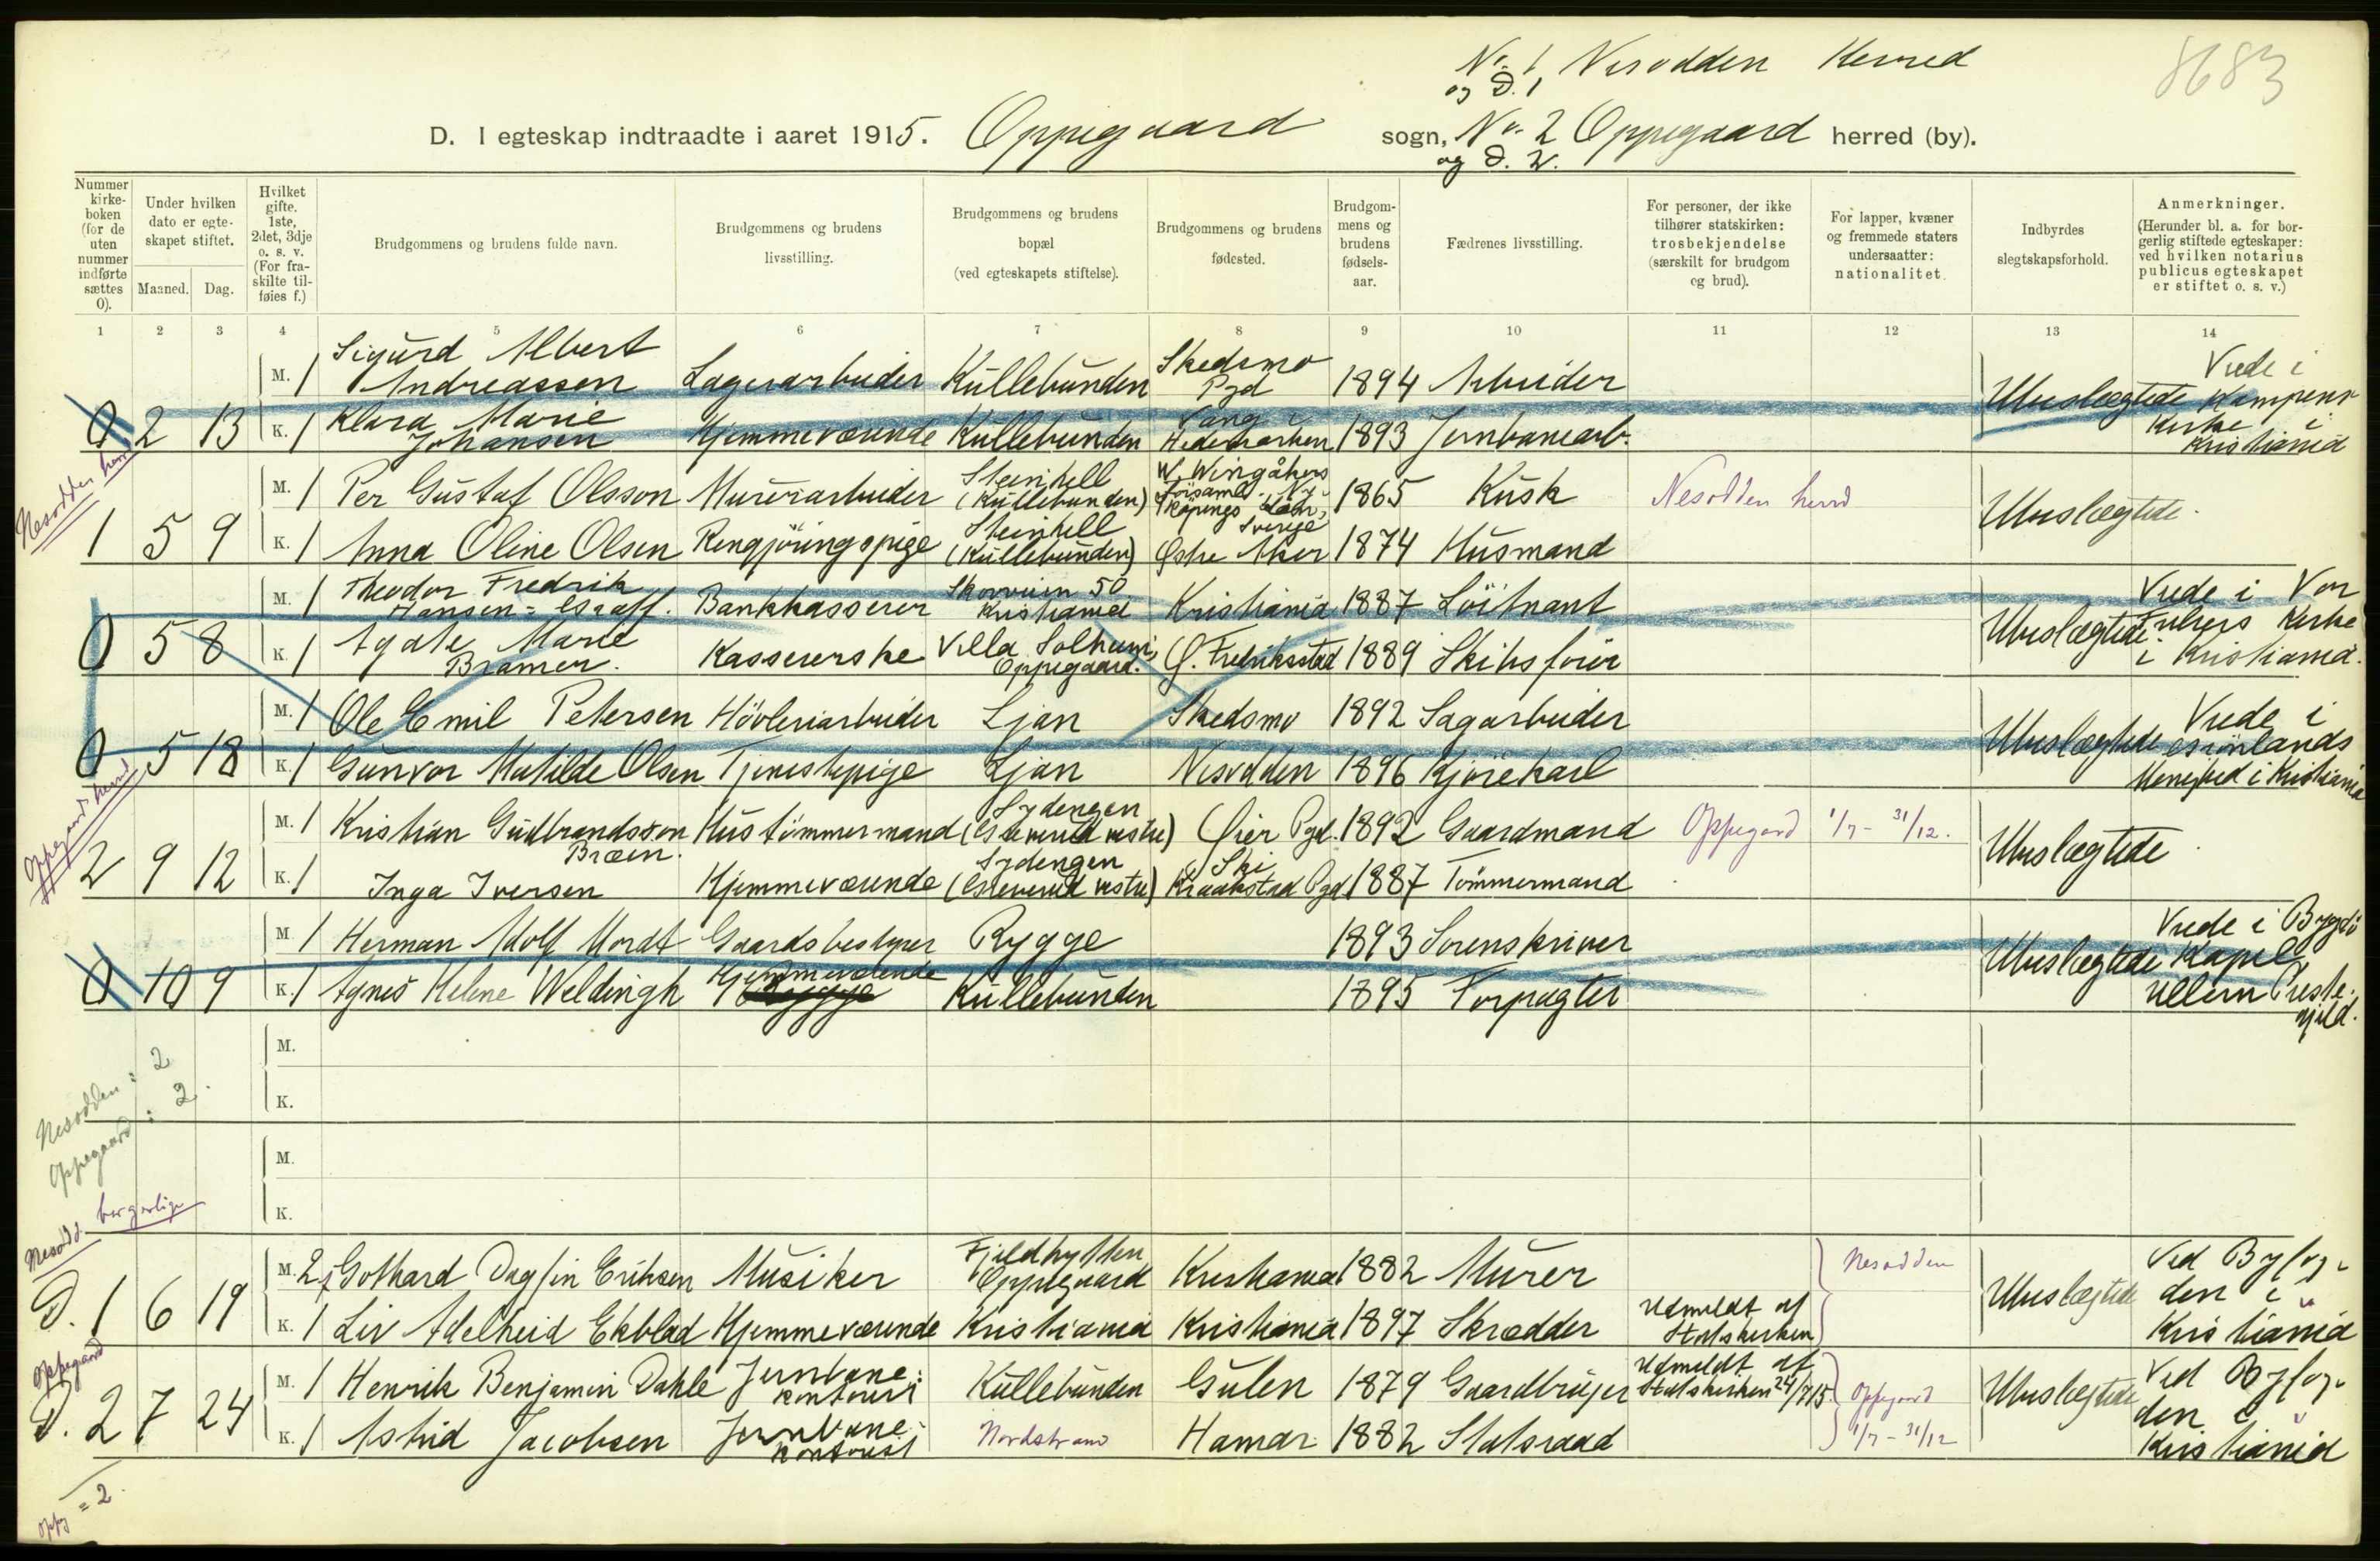 No. 1 Nesodden Herred
og D. 1
8683
D. I egteskap indtraadte i aaret 1915. Oppegaard sogn, No. 2 Oppegaard herred (by).
og D. 2.
Nummer kirke-boken (for de uten nummer indførte sættes 0).
Under hvilken dato er egte-skapet stiftet.
Maaned. Dag.
Hvilket gifte. 1ste, 2det, 3dje o. s. v. (For fra-skilte til-føies f.)
Brudgommens og brudens fulde navn.
Brudgommens og brudens livsstilling.
Brudgommens og brudens bopæl (ved egteskapets stiftelse).
Brudgommens og brudens fødested.
Brudgom-mens og brudens fødsels-aar.
Fædrenes livsstilling.
For personer, der ikke tilhører statskirken: trosbekjendelse (særskilt for brudgom og brud).
For lapper, kvæner og fremmede staters undersaatter: nationalitet.
Indbyrdes slegtskapsforhold.
Anmerkninger. (Herunder bl. a. for bor-gerlig stiftede egteskaper: ved hvilken notarius publicus egteskapet er stiftet o. s. v.)
1 2 3 4 5 6 7 8 9 10 11 12 13 14
M. 1 Sigurd Albert Andreassen Lagerarbeider Kullebunden Skedsmo Pgd 1894 Arbeider Ubeslægtede Viede i Kampens Kirke i Kristiania
0 2 13 K. 1 Klara Marie Johansen Hjemmeværende Kullebunden Vang i Hedemarken 1893 Jernbanearb.
Nesodden herred
M. 1 Per Gustaf Olsson Murerarbeider Steinhell (Kullebunden) W. Wingåkers Församl. Ny-köpings Län, Sverige 1865 Kusk Nesodden herred Ubeslægtede.
1 5 9 K. 1 Anna Oline Olsen Rengjöringspige Steinhell (Kullebunden) Østre Aker 1874 Husmand
M. 1 Theodor Fredrik Hansen=Graff. Bankkasserer Skovveien 50 Kristiania Kristiania 1887 Löitnant Ubeslægtede Viede i Vor Frelsers Kirke i Kristiania.
0 5 8 K. 1 Agate Marie Bramer. Kassererske Villa Solheim, Oppegaard. G. Fredriksstad 1889 Skibsförer
M. 1 Ole Emil Petersen Hövleriarbeider Ljan Skedsmo 1892 Sagarbeider Ubeslægtede Viede i Grönlands Menighed i Kristiania
0 5 18 K. 1 Gunvor Matilde Olsen Tjenestepige Ljan Nesodden 1896 Kjörekarl
Oppegaard herred
M. 1 Kristian Gudbrandsson Bræin. Hustömmermand Sydengen (Greverud vestre) Øier Pgd. 1892 Gaardmand Oppegard 1/7 - 31/12. Ubeslægtede
2 9 12 K. 1 Inga Iversen Hjemmeværende Sydengen (Greverud vestre) Ski Kraakstad Pgd 1887 Tömmermand
M. 1 Herman Adolf Mordt Gaardsbestyrer Rygge 1893 Sorenskriver Ubeslægtede Viede i Bygdö Kapel, Ullern Preste-gjeld.
0 10 9 K. 1 Agnes Helene Weldingh Hjemmeværende Kullebunden 1895 Forpagter
M.
K.
Nesodden: 2
Oppegaard: 2.
M.
K.
Nesodd. borgerlige
M. 2 f Gothard Dagfin Eriksen Musiker Fjeldhytten Oppegaard Kristiania 1882 Murer Nesodden Ubeslægtede Ved Byfog-den i Kristiania
D. 1 6 19 K. 1 Liv Adelheid Ekblad Hjemmeværende Kristiania Kristiania 1897 Skrædder Udmeldt af Statskirken
Oppegaard
M. 1 Henrik Benjamin Dahle Jernbane-kontorist Kullebunden Gulen 1879 Gaardbruger Udmeldt af Statskirken 24/7 15. Oppegard 1/7 - 31/12 Ubeslægtede Ved Byfog-den i Kristiania
D. 2 7 24 K. 1 Astrid Jacobsen Jernbane-kontorist Nordstrand Hamar 1882 Statsraad
Oppg = 2.